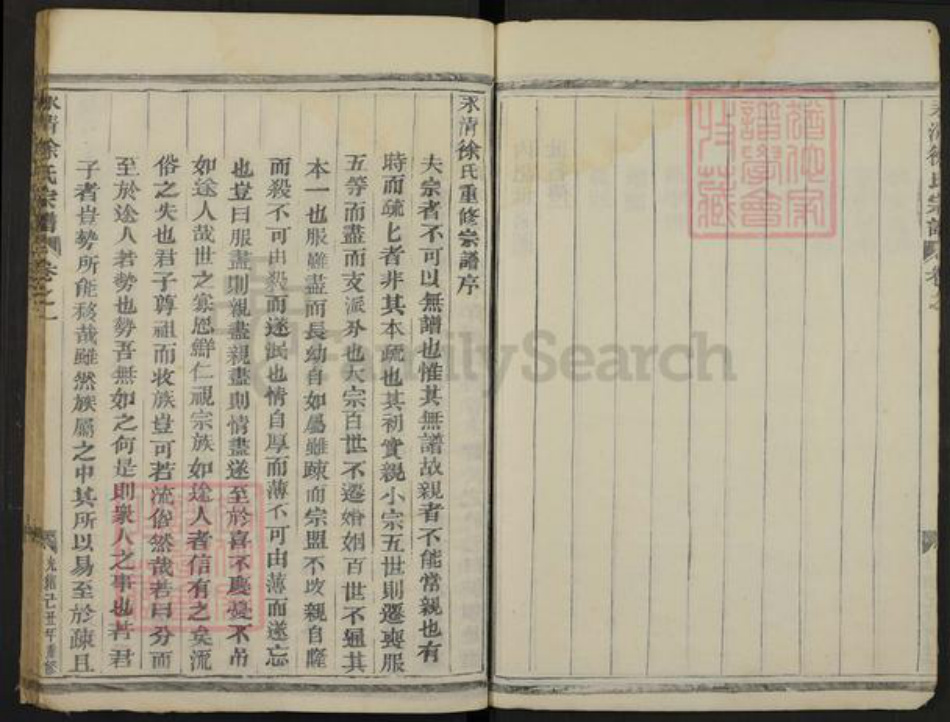 永清徐氏宗譜 卷之一
永清徐氏重修宗譜序
夫宗者不可以無譜也惟其無譜故親者不能常親也有
時而疏疏者非其本疏也其初實親小宗五世則遷喪服
五等而盡而支派分也大宗百世不遷婚姻百世不通其
本一也服雖盡而長幼自如屬雖疎而宗盟不攺親自隆
而殺不可由殺而遂泯也情自厚而薄不可由薄而遂忘
也豈曰服盡則親盡親盡則情盡遂至於喜不慶憂不弔
如途人哉世之寡恩鮮仁視宗族如途人者信有之矣流
俗之失也君子尊祖而收族豈可若流俗然哉若曰分而
至於途人者勢也勢吾無如之何是則衆人之事也若君
子者豈勢所能移哉雖然族屬之中其所以易至於疎且
永清徐氏宗譜 卷之一
光緒己丑年重修
FamilySearch